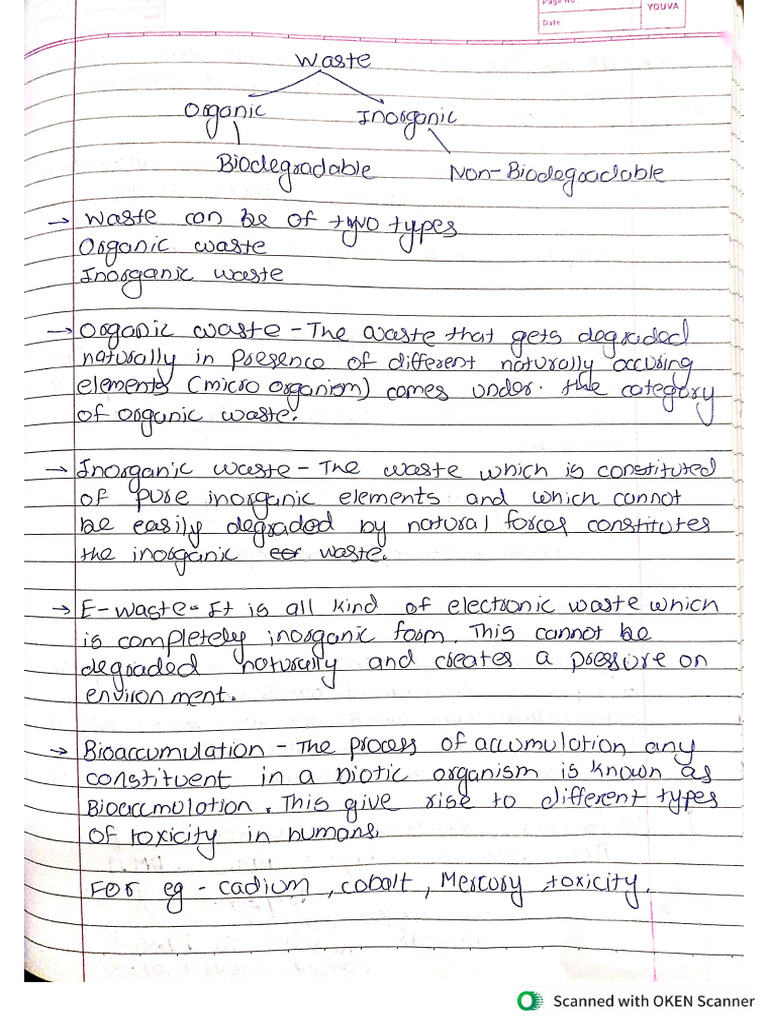 Page No.
YOUVA
Date
Waste
Organic Inorganic
Biodegradable Non-Biodegradable
→ Waste can be of two types
Organic waste
Inorganic waste
→ Organic waste - The waste that gets degraded
naturally in presence of different naturally occuring
elements (micro organism) comes under the category
of organic waste.
→ Inorganic waste - The waste which is constituted
of pure inorganic elements and which cannot
be easily degraded by natural forces constitutes
the inorganic waste.
→ E-waste - It is all kind of electronic waste which
is completely inorganic form. This cannot be
degraded naturally and creates a pressure on
environment.
→ Bioaccumulation - The process of accumulation any
constituent in a biotic organism is known as
Bioaccmulation. This give rise to different types
of toxicity in humans.
For eg - cadium, cobalt, Mercury toxicity.
Scanned with OKEN Scanner